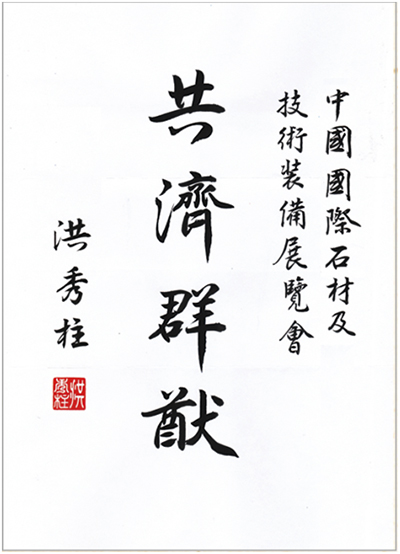 中國國際石材及
技術装備展覽會
共濟群猷
洪秀柱
洪秀柱